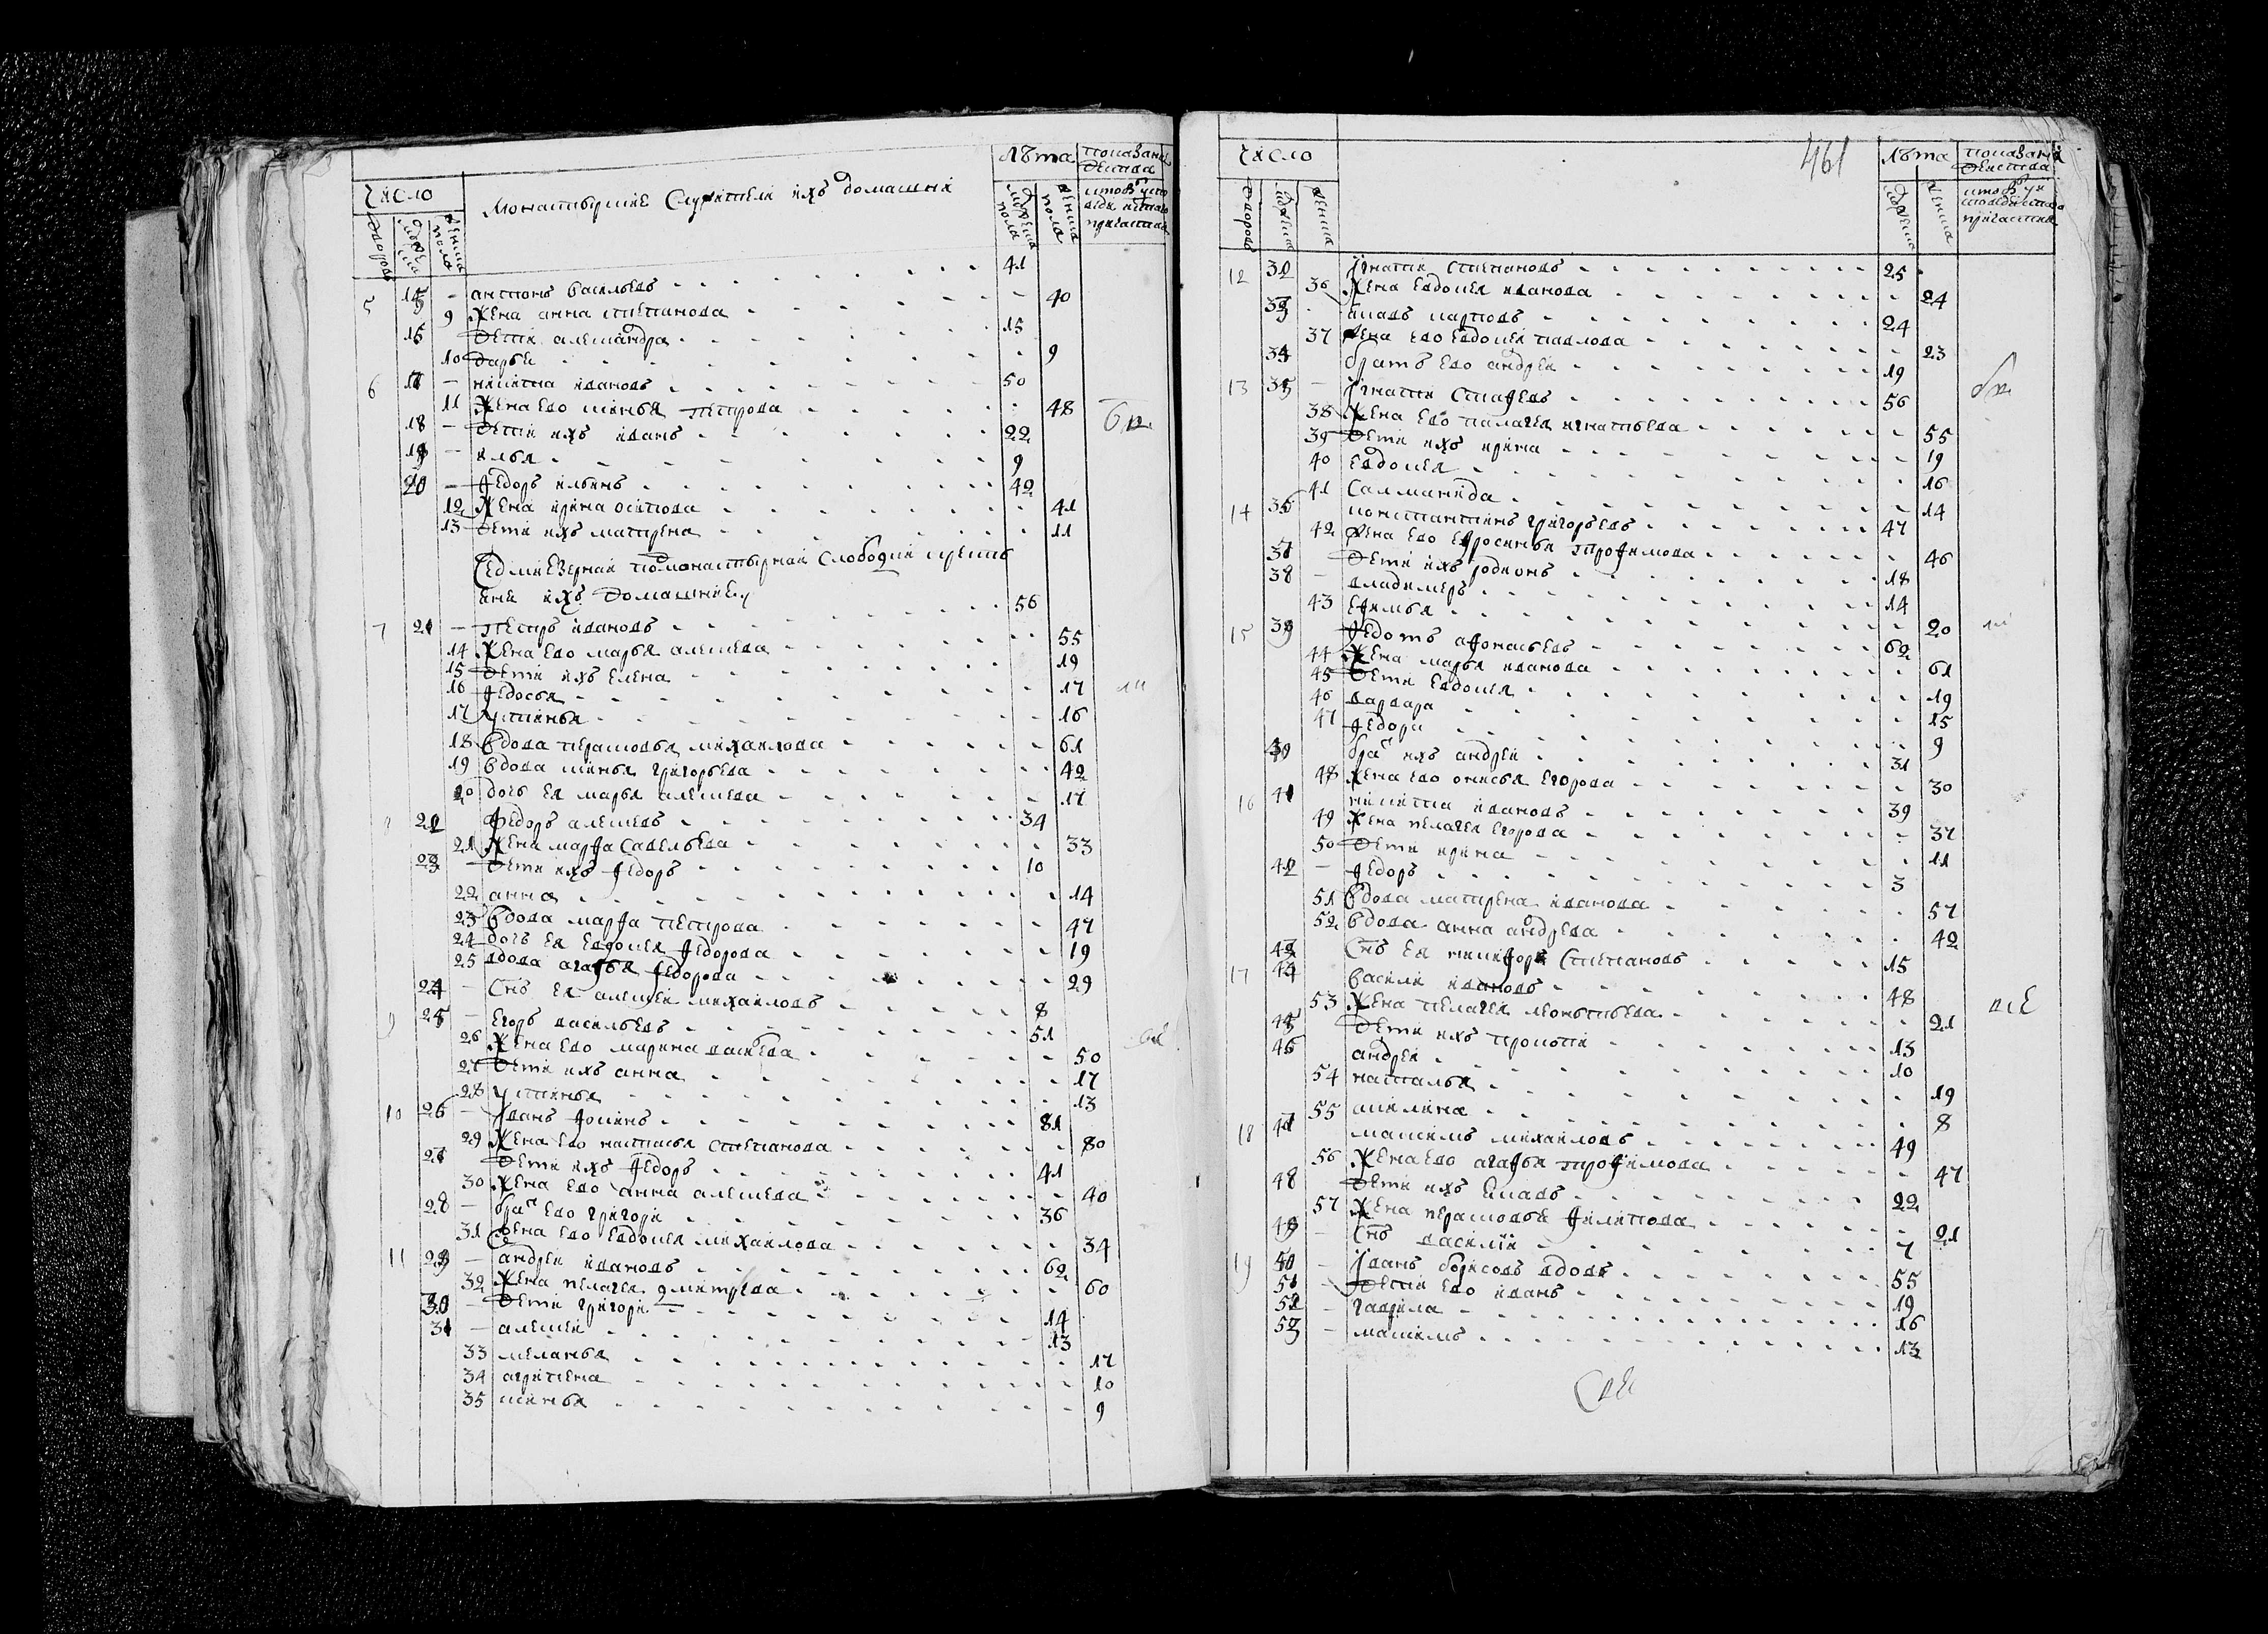 Число
Монастырские Служители ихъ домашния
лѣта
показания действа
дворовъ
мужеска
женска пола
мужеска пола
женска пола
кто въ испо веди и светаго причастия
5 14 — антонъ васильевъ 41
9 Жена анна степанова 40
15 Дети александра 15
10 дарья 9
6 17 — никита ивановъ 50
11 Жена ево ксинья петрова 48
18 — Дети ихъ иванъ 22
19 — илья 9
20 — Федоръ ильинъ 42
12 Жена ирина осипова 41
13 Дети ихъ матрена 11
Седмиезерной подмонастырной слободки кресть
яне ихъ домашние
7 21 — петръ ивановъ 56
14 Жена ево марья алексеева 55
15 Дети ихъ елена 19
16 Федосья 17
17 устинья 16
18 Вдова перасковья михаилова 61
19 Вдова ксинья григорьева 42
20 дочь ея марья алексеева 17
22 Федоръ алексеевъ 34
21 Жена марфа савельева 33
23 — Дети ихъ Федоръ 10
22 анна 14
23 Вдова марфа петрова 47
24 дочь ея евдокея Федорова 19
25 вдова агафья Федорова 29
24 — Снъ ея алексеи михаиловъ 8
9 25 — Егоръ васильевъ 51
26 Жена ево марина васильева 50
27 Дети ихъ анна 17
28 устинья 13
10 26 — Иванъ Фокинъ 81
29 Жена ево настасья степанова 80
27 Дети ихъ Федоръ 41
30 Жена ево анна алексеева 40
28 — братъ ево григори 36
31 Жена ево евдокея михаилова 34
11 29 — андреи ивановъ 62
32 Жена пелагея дмитреева 60
30 — Дети григори 14
31 — алексеи 13
33 меланья 17
34 агрипена 10
35 ксинья 9
461
Число
лѣта
показания действа
дворовъ
мужеска
женска
мужеска
женска
кто въ ис поведи светаго причастия
12 32 Игнати степановъ 25
36 Жена евдокея иванова 24
33 влась карповъ 24
37 жена ево евдокея павлова 23
34 братъ ево андреи 19
13 35 — Игнати стафеевъ 56
38 Жена ево палагея игнатьева 55
39 Дети ихъ ирина 19
40 евдокея 16
41 саламанида 14
14 36 константинъ григорьевъ 47
42 Жена ево ефросинья трофимова 46
37 Дети ихъ родионъ 18
38 — владимеръ 14
43 ефимья 20
15 39 Федотъ афонасьевъ 62
44 Жена марья иванова 61
45 Дети евдокея 19
46 варвара 15
47 Федора 9
40 братъ ихъ андреи 31
48 Жена ево онисья егорова 30
16 41 никита ивановъ 39
49 Жена пелагея егорова 37
50 Дети ирина 11
42 — Федоръ 3
51 Вдова матрена иванова 57
52 Вдова анна андреева 42
43 Снъ ея никифоръ степановъ 15
17 44 Васили ивановъ 48
53 Жена пелагея леонтьева 21
45 Дети ихъ прокопи 13
46 андреи 10
54 наталья 19
55 акилина 8
18 47 максимъ михаиловъ 49
56 Жена ево агафья трофимова 47
48 Дети ихъ власъ 22
57 Жена перасковья филипова 21
49 — Снъ василии 7
19 50 — Иванъ борисовъ вдовъ 55
51 — Дети ево иванъ 19
52 — гаврила 16
53 — максимъ 13